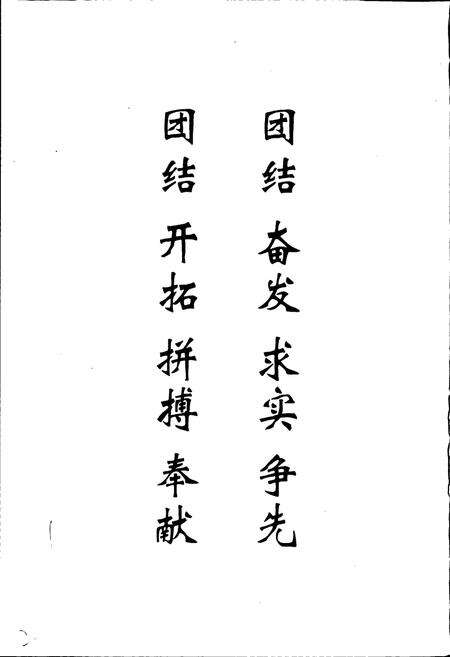 团结 奋发 求实 争先
团结 开拓 拼搏 奉献